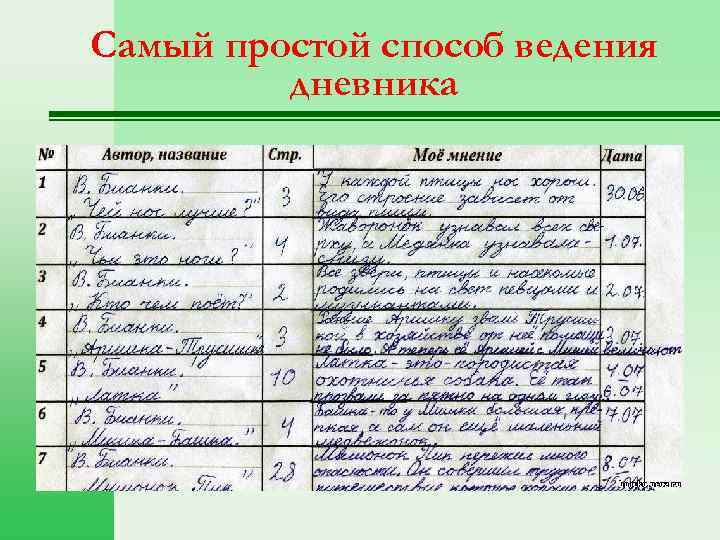 Самый простой способ ведения
дневника
№ Автор, название Стр. Моё мнение Дата
1 В. Бианки. „Чей нос лучше?" 3
У каждой птицы нос хорош.
Его строение зависит от
вида пищи.
30.06
2 В. Бианки. „Чьи это ноги?" 4
Жаворонок узнавал всех све-
рху, а Медянка узнавала-
снизу.
1.07.
3 В. Бианки. „Кто чем поёт?" 2
Все звери, птицы и насекомые
родились на свет певцами и
музыкантами.
2.07.
4 В. Бианки. „Аришка-Трусишка" 3
Аришку звали Труси
ой, в хозяйстве от неё помощи
не было. А теперь её Аришей с
величают
3.07.
5 В. Бианки. „Латка" 10
Латка - это породистая
охотничья собака. Её так
прозвали за пятно на одном глазу.
4.07
6.07
6 В. Бианки. „Мишка-Башка." 4
Башка-то у Мишки большая, кре-
пкая, а сам он ещё маленький
медвежонок.
7.07
7 В. Бианки. Мышонок Пик 28
Мышонок Пик пережил много
опасности. Он совершил трудное
путешествие
8.07